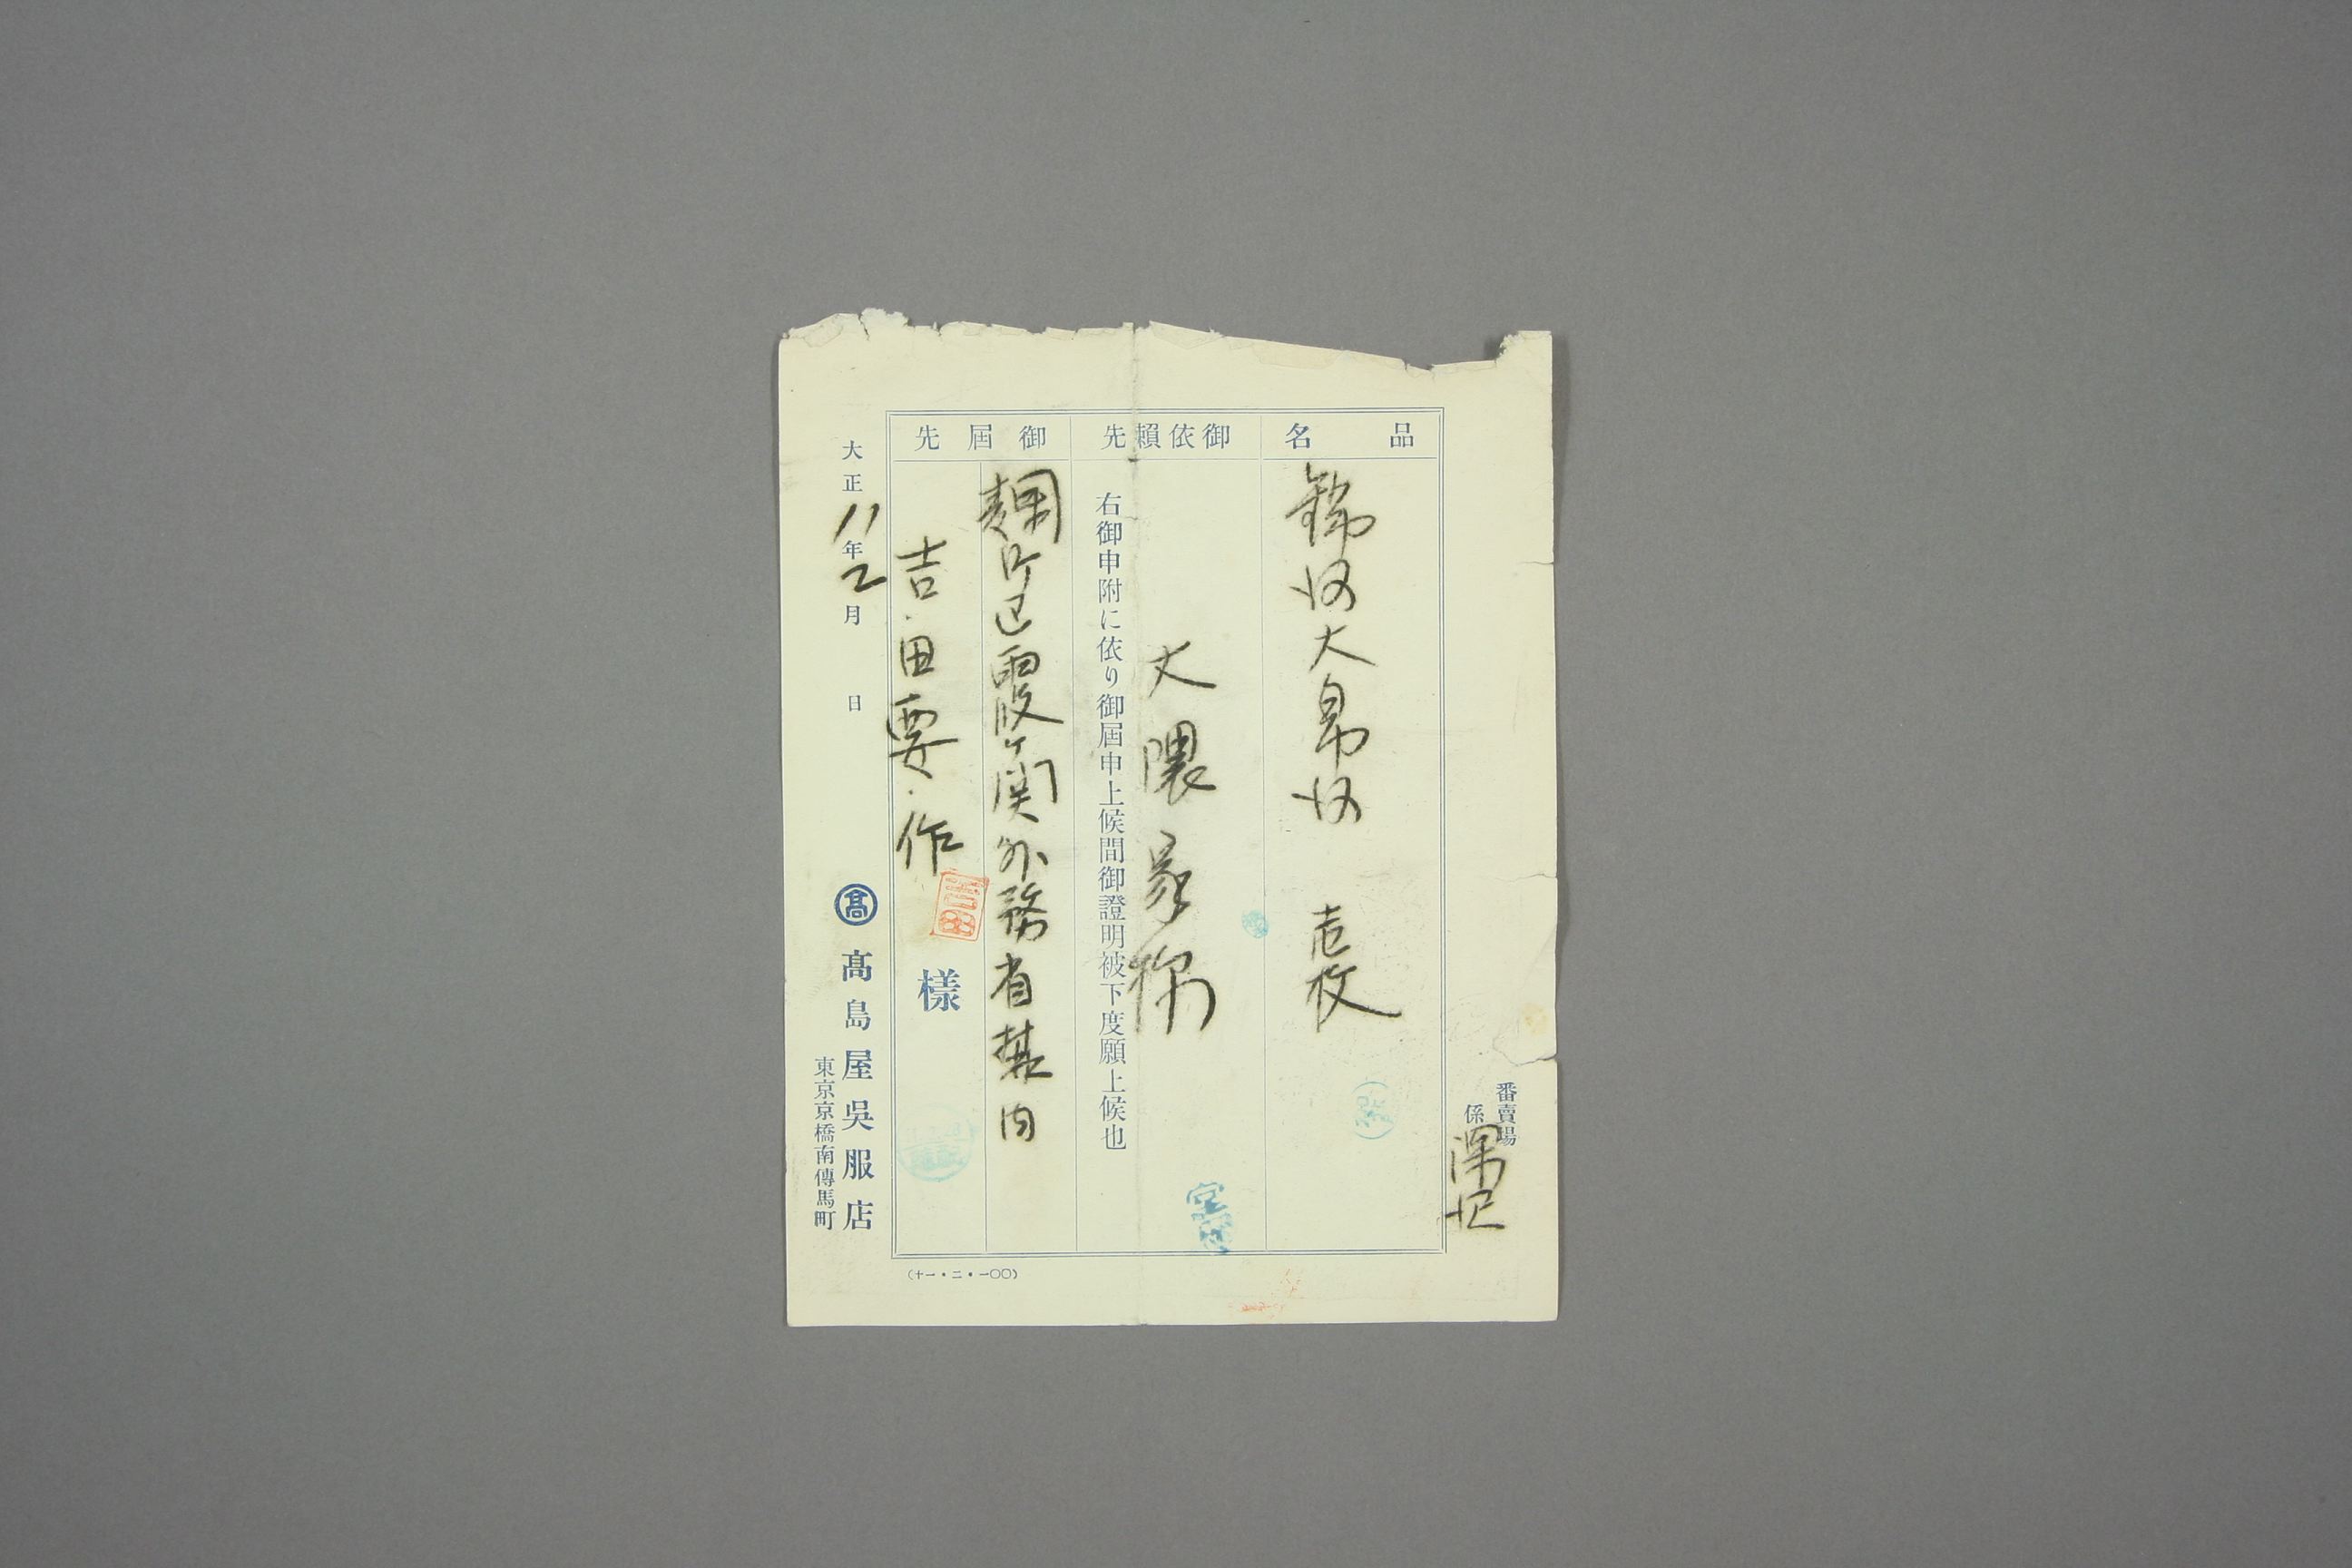 番賣場
係
品名
錦紗大帛紗 壱枚
御依賴先
大隈家様
右御申附に依り御屆申上候間御證明被下度願上候也
御屆先
麹町区霞ヶ関外務省構内
吉田要作
様
大正11年2月 日
髙
髙島屋吳服店
東京京橋南傳馬町
(十一・二・一〇〇)